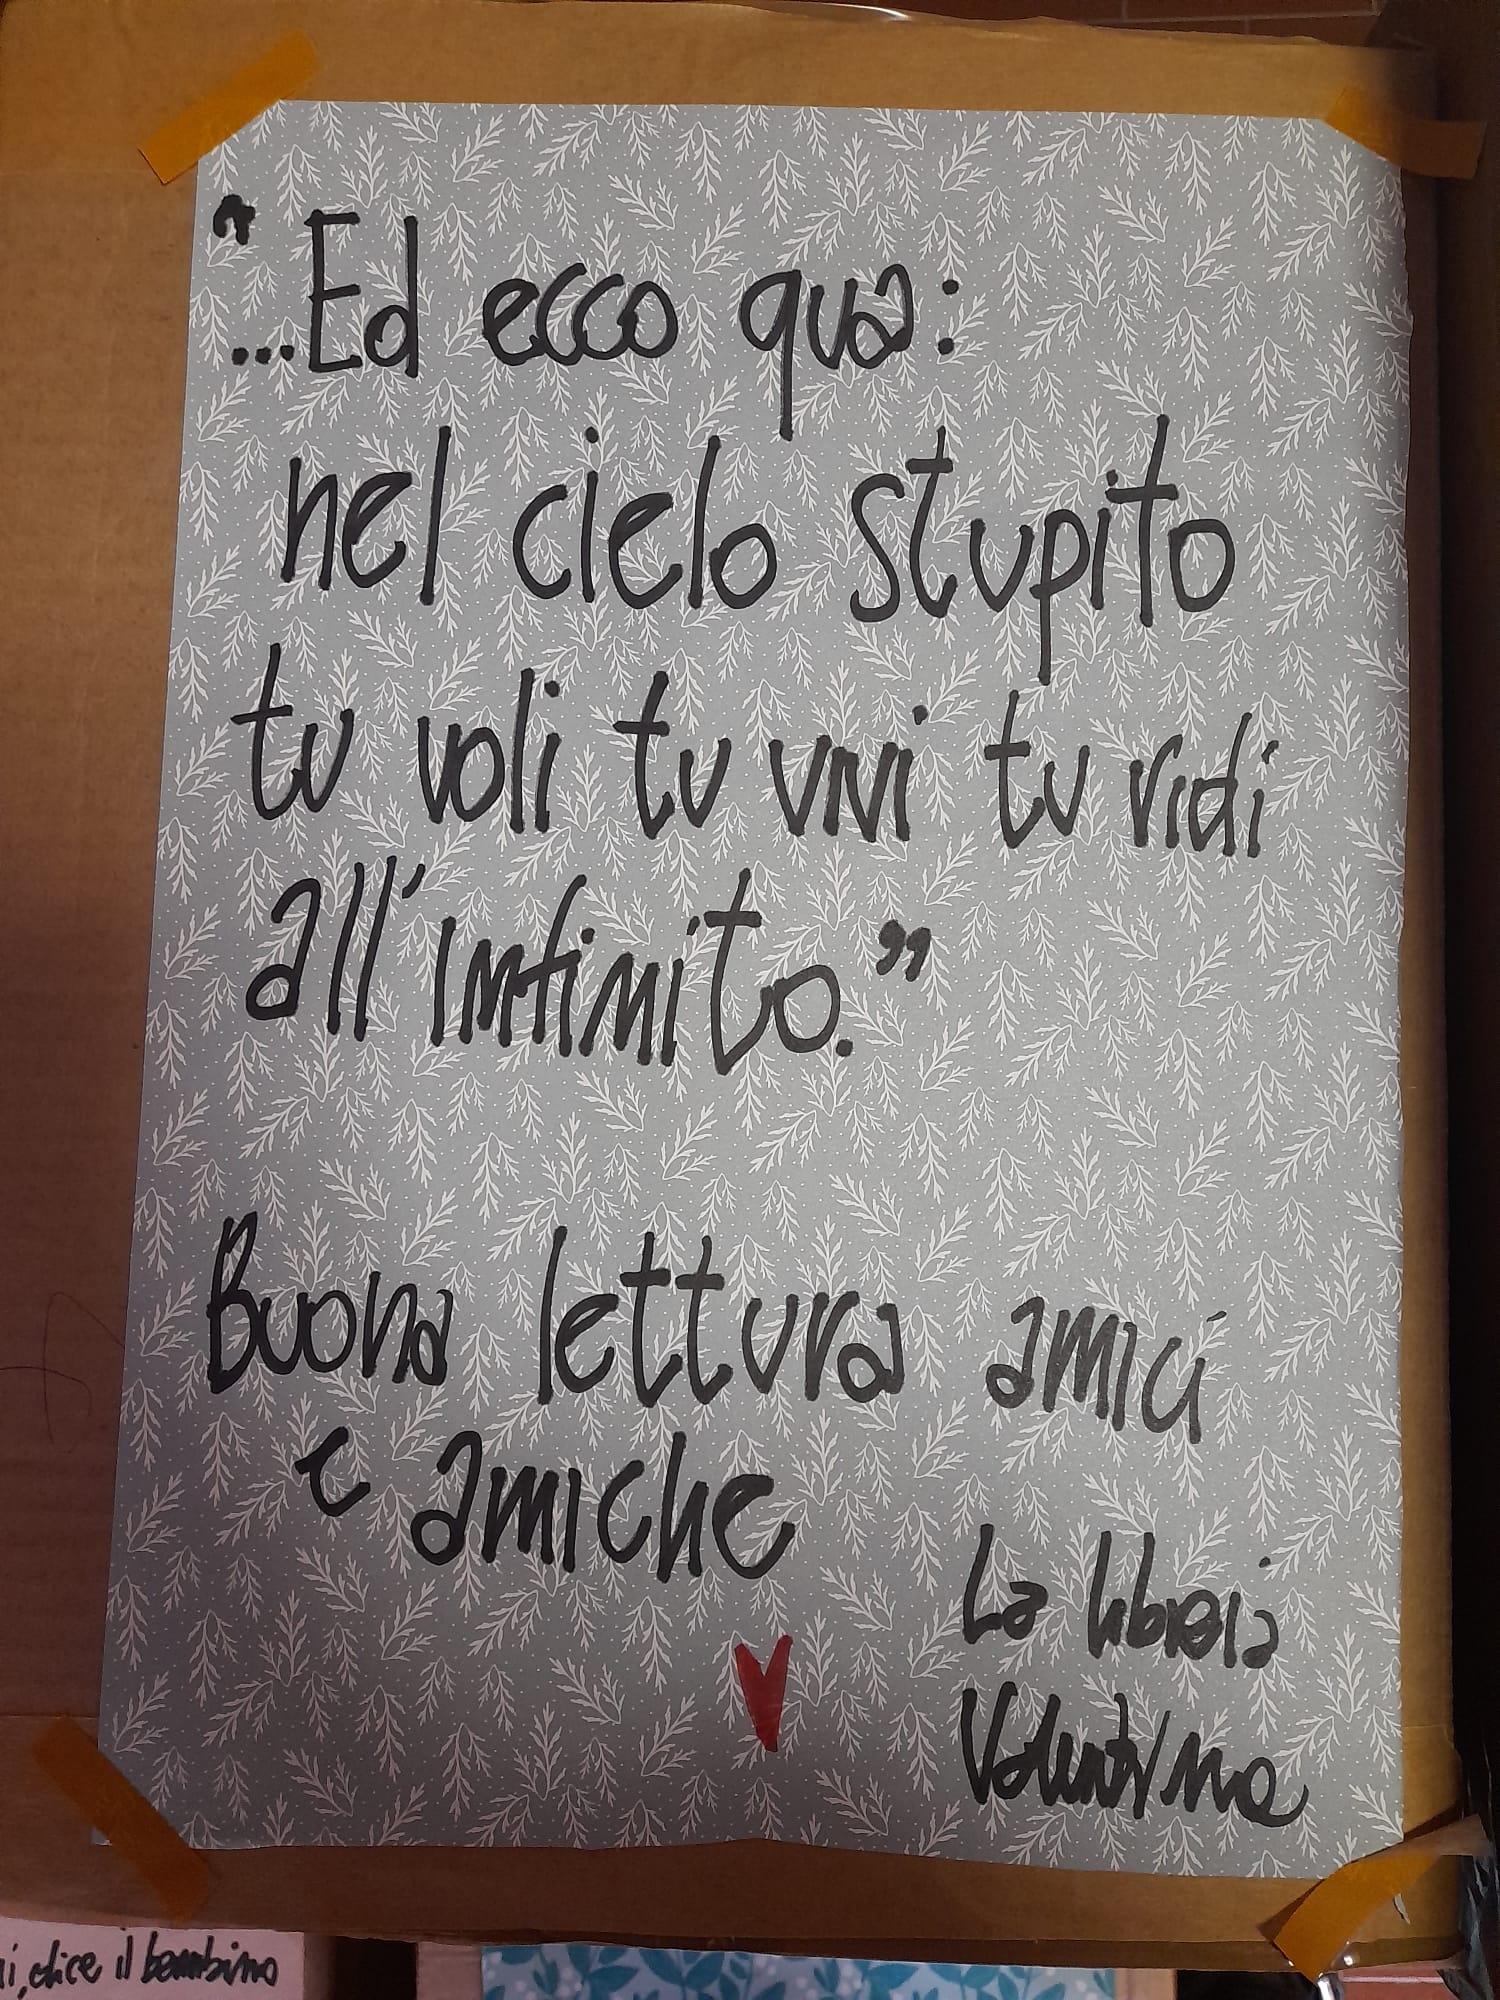 "...Ed ecco qua:
nel cielo stupito
tu voli tu vivi tu ridi
all'infinito."
Buona lettura amici
e amiche
La libraia
Valentina
dice il bambino